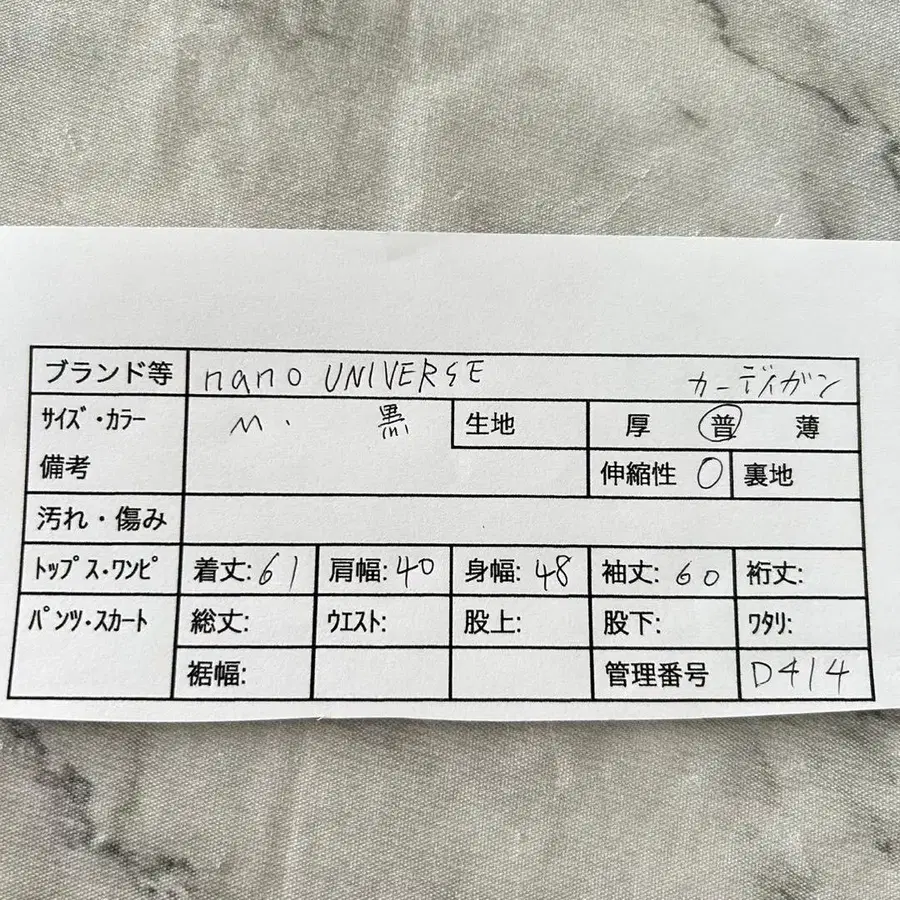 ブランド等 nano UNIVERSE カーディガン
サイズ・カラー M. 黒 生地 厚 普 薄
備考 伸縮性 〇 裏地
汚れ・傷み
トップス・ワンピ 着丈:61 肩幅:40 身幅:48 袖丈:60 裄丈:
パンツ・スカート 総丈: ウエスト: 股上: 股下: ワタリ:
裾幅: 管理番号 D414